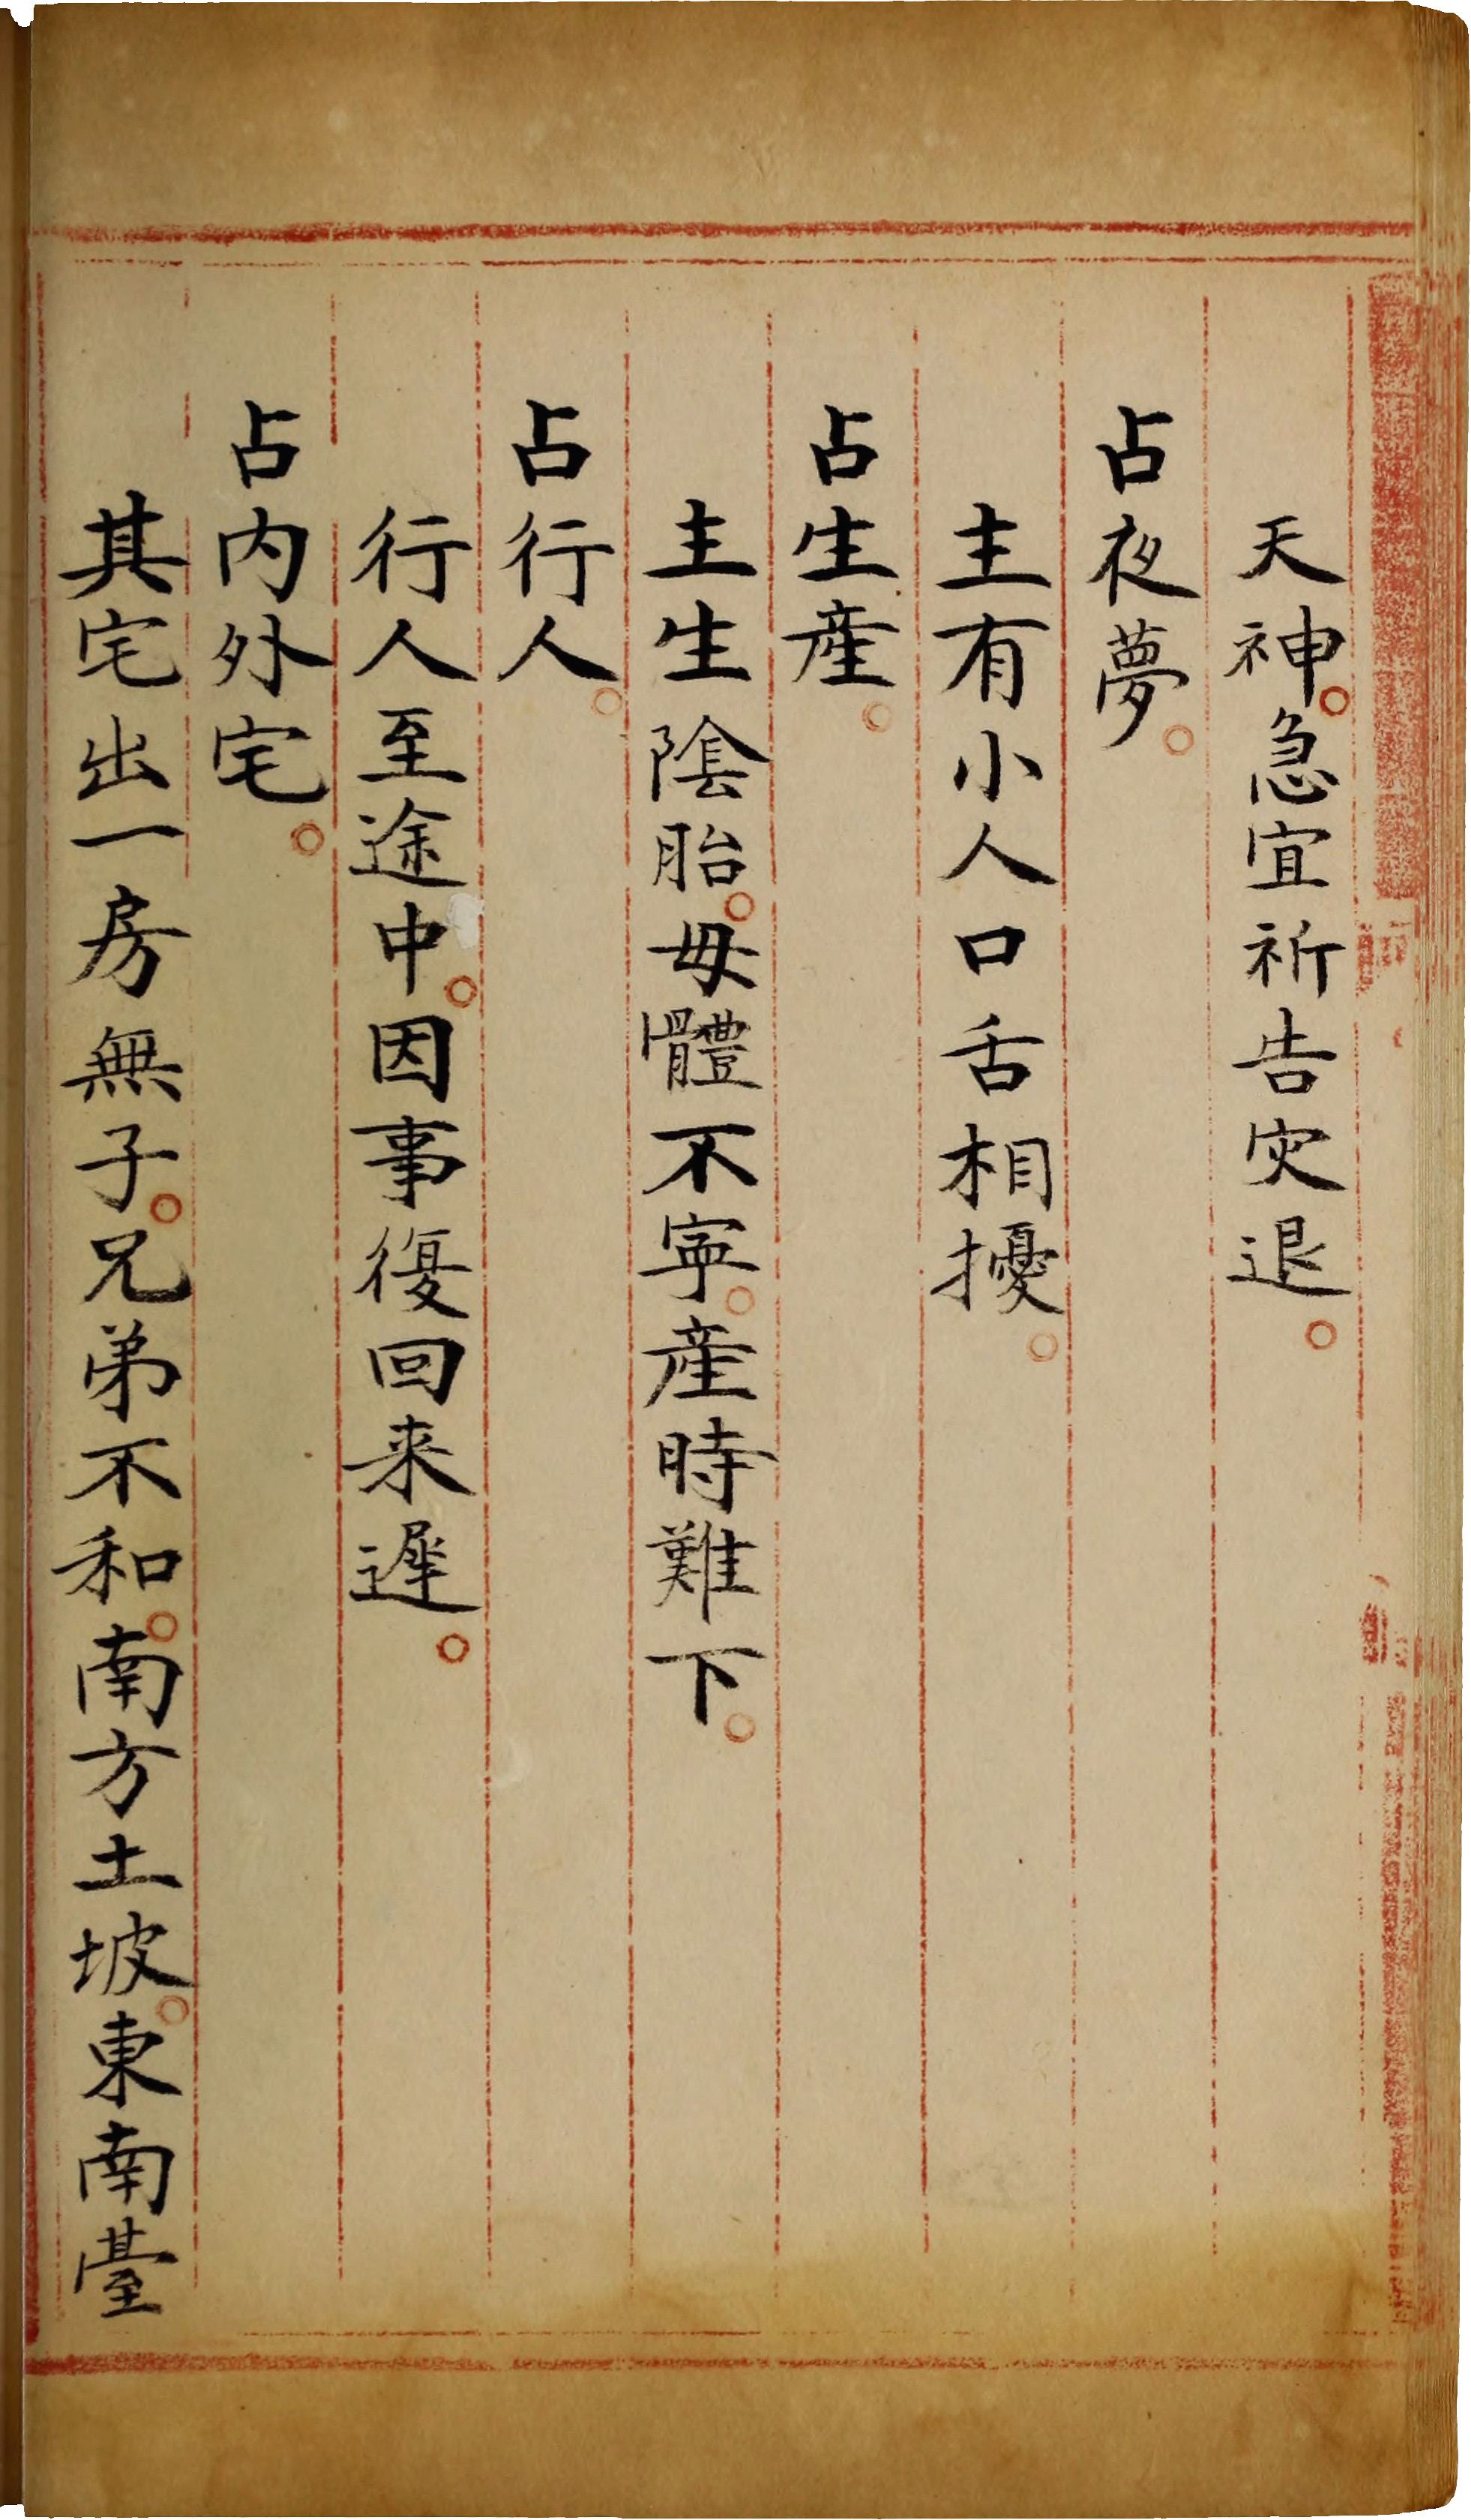 天神。急宜祈告灾退。
占夜夢。
主有小人口舌相擾。
占生産。
主生陰胎。母體不寧。産時難下。
占行人。
行人至途中。因事復回来遲。
占内外宅。
其宅出一房無子。兄弟不和。南方土坡。東南臺